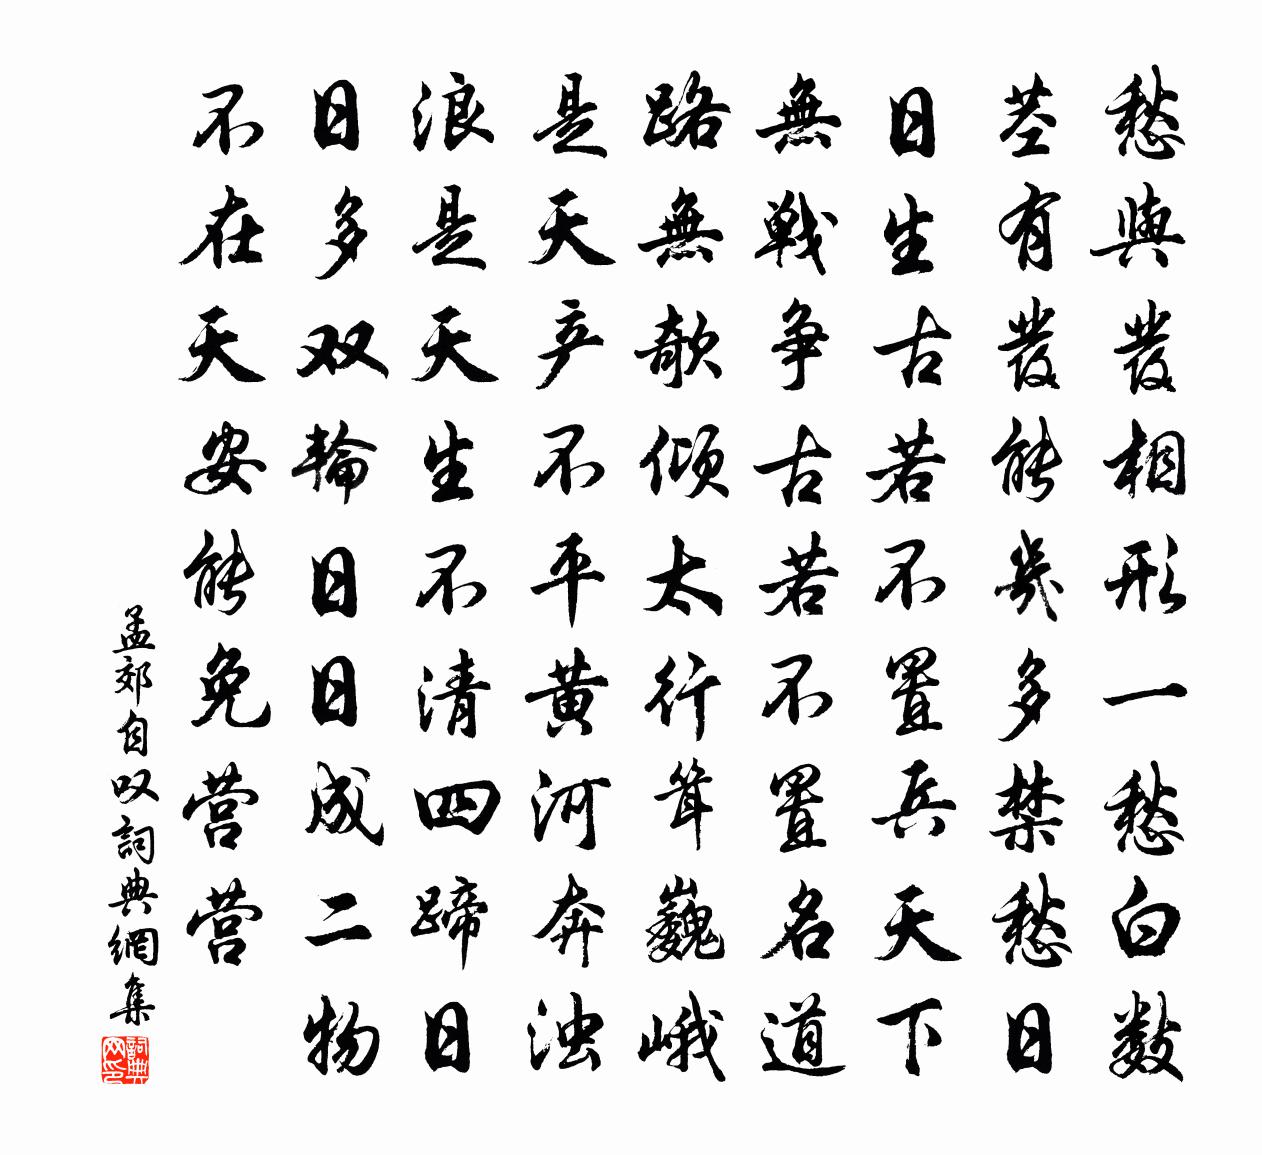 愁與發相形一愁白数
茎有發能幾多禁愁日
日生古若不置兵天下
無戦争古若不置名道
路無欹倾太行耸巍峨
是天产不平黄河奔浊
浪是天生不清四蹄日
日多双輪日日成二物
不在天安能免营营
孟郊自叹詞典網集
詞典
网印